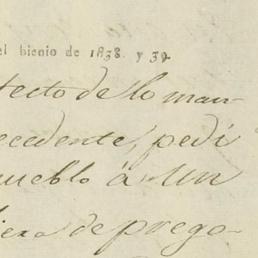 el bienio de 1838. y 39.
tecto de lo man-
ecedente, pedí
pueblo á un
iera de prego-